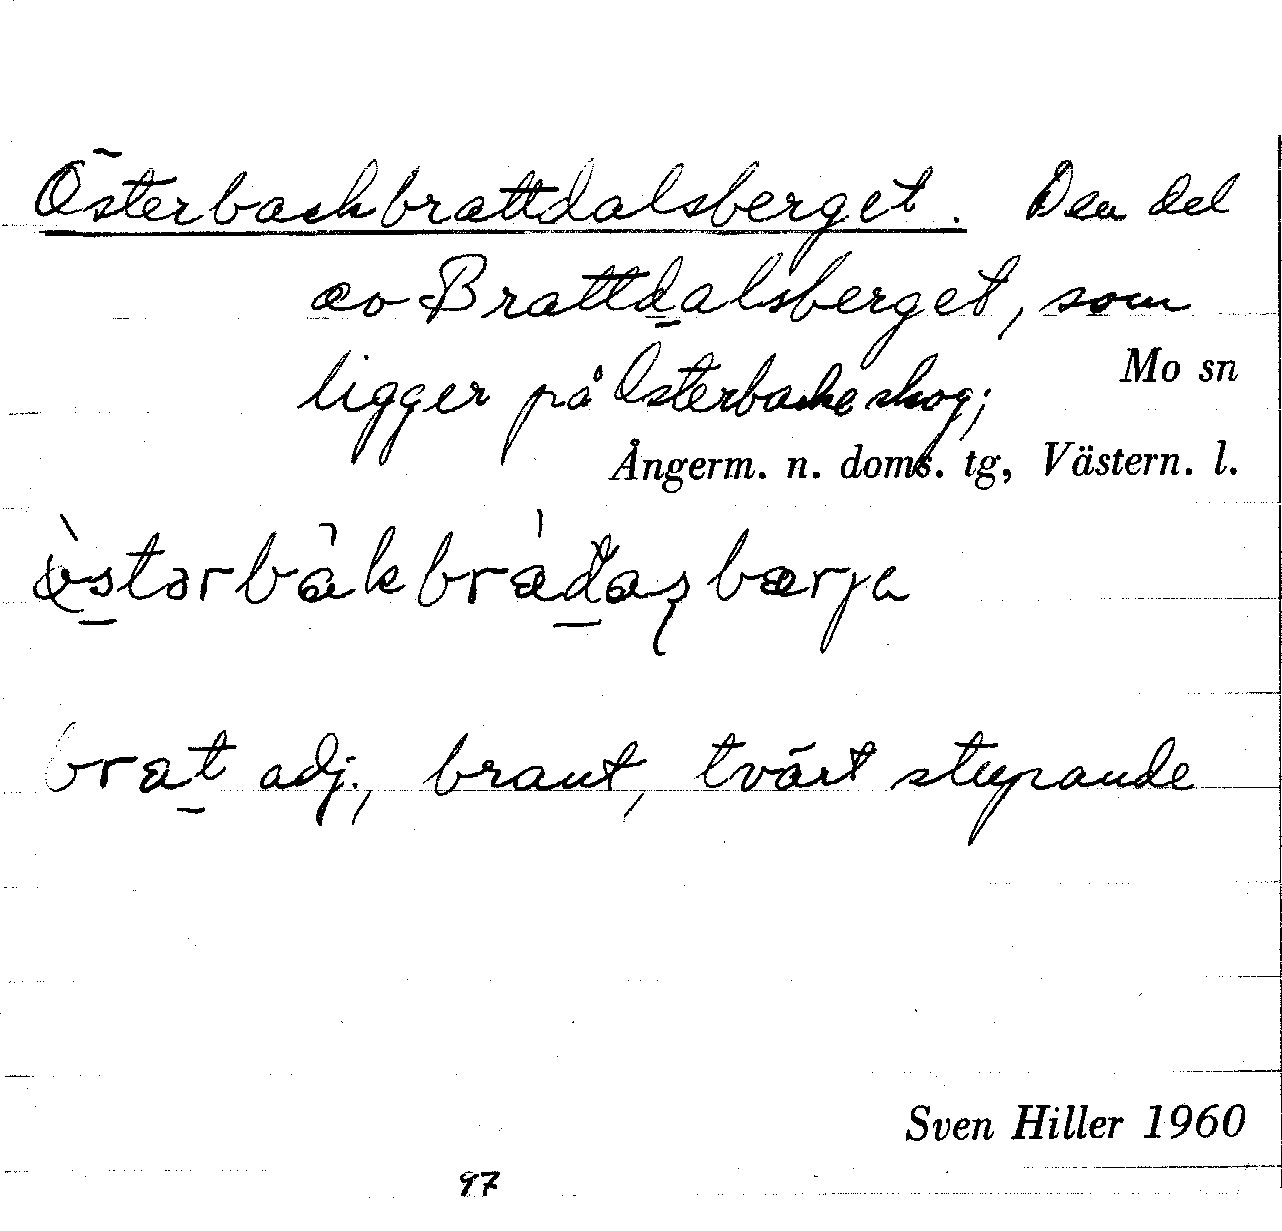 Österbackbrattdalsberget. Den del
av Brattdalsberget, som
ligger på Österbacke skog;
Mo sn
Ångerm. n. doms. tg, Västern. l.
brat adj., brant, tvärt stupande
Sven Hiller 1960
97